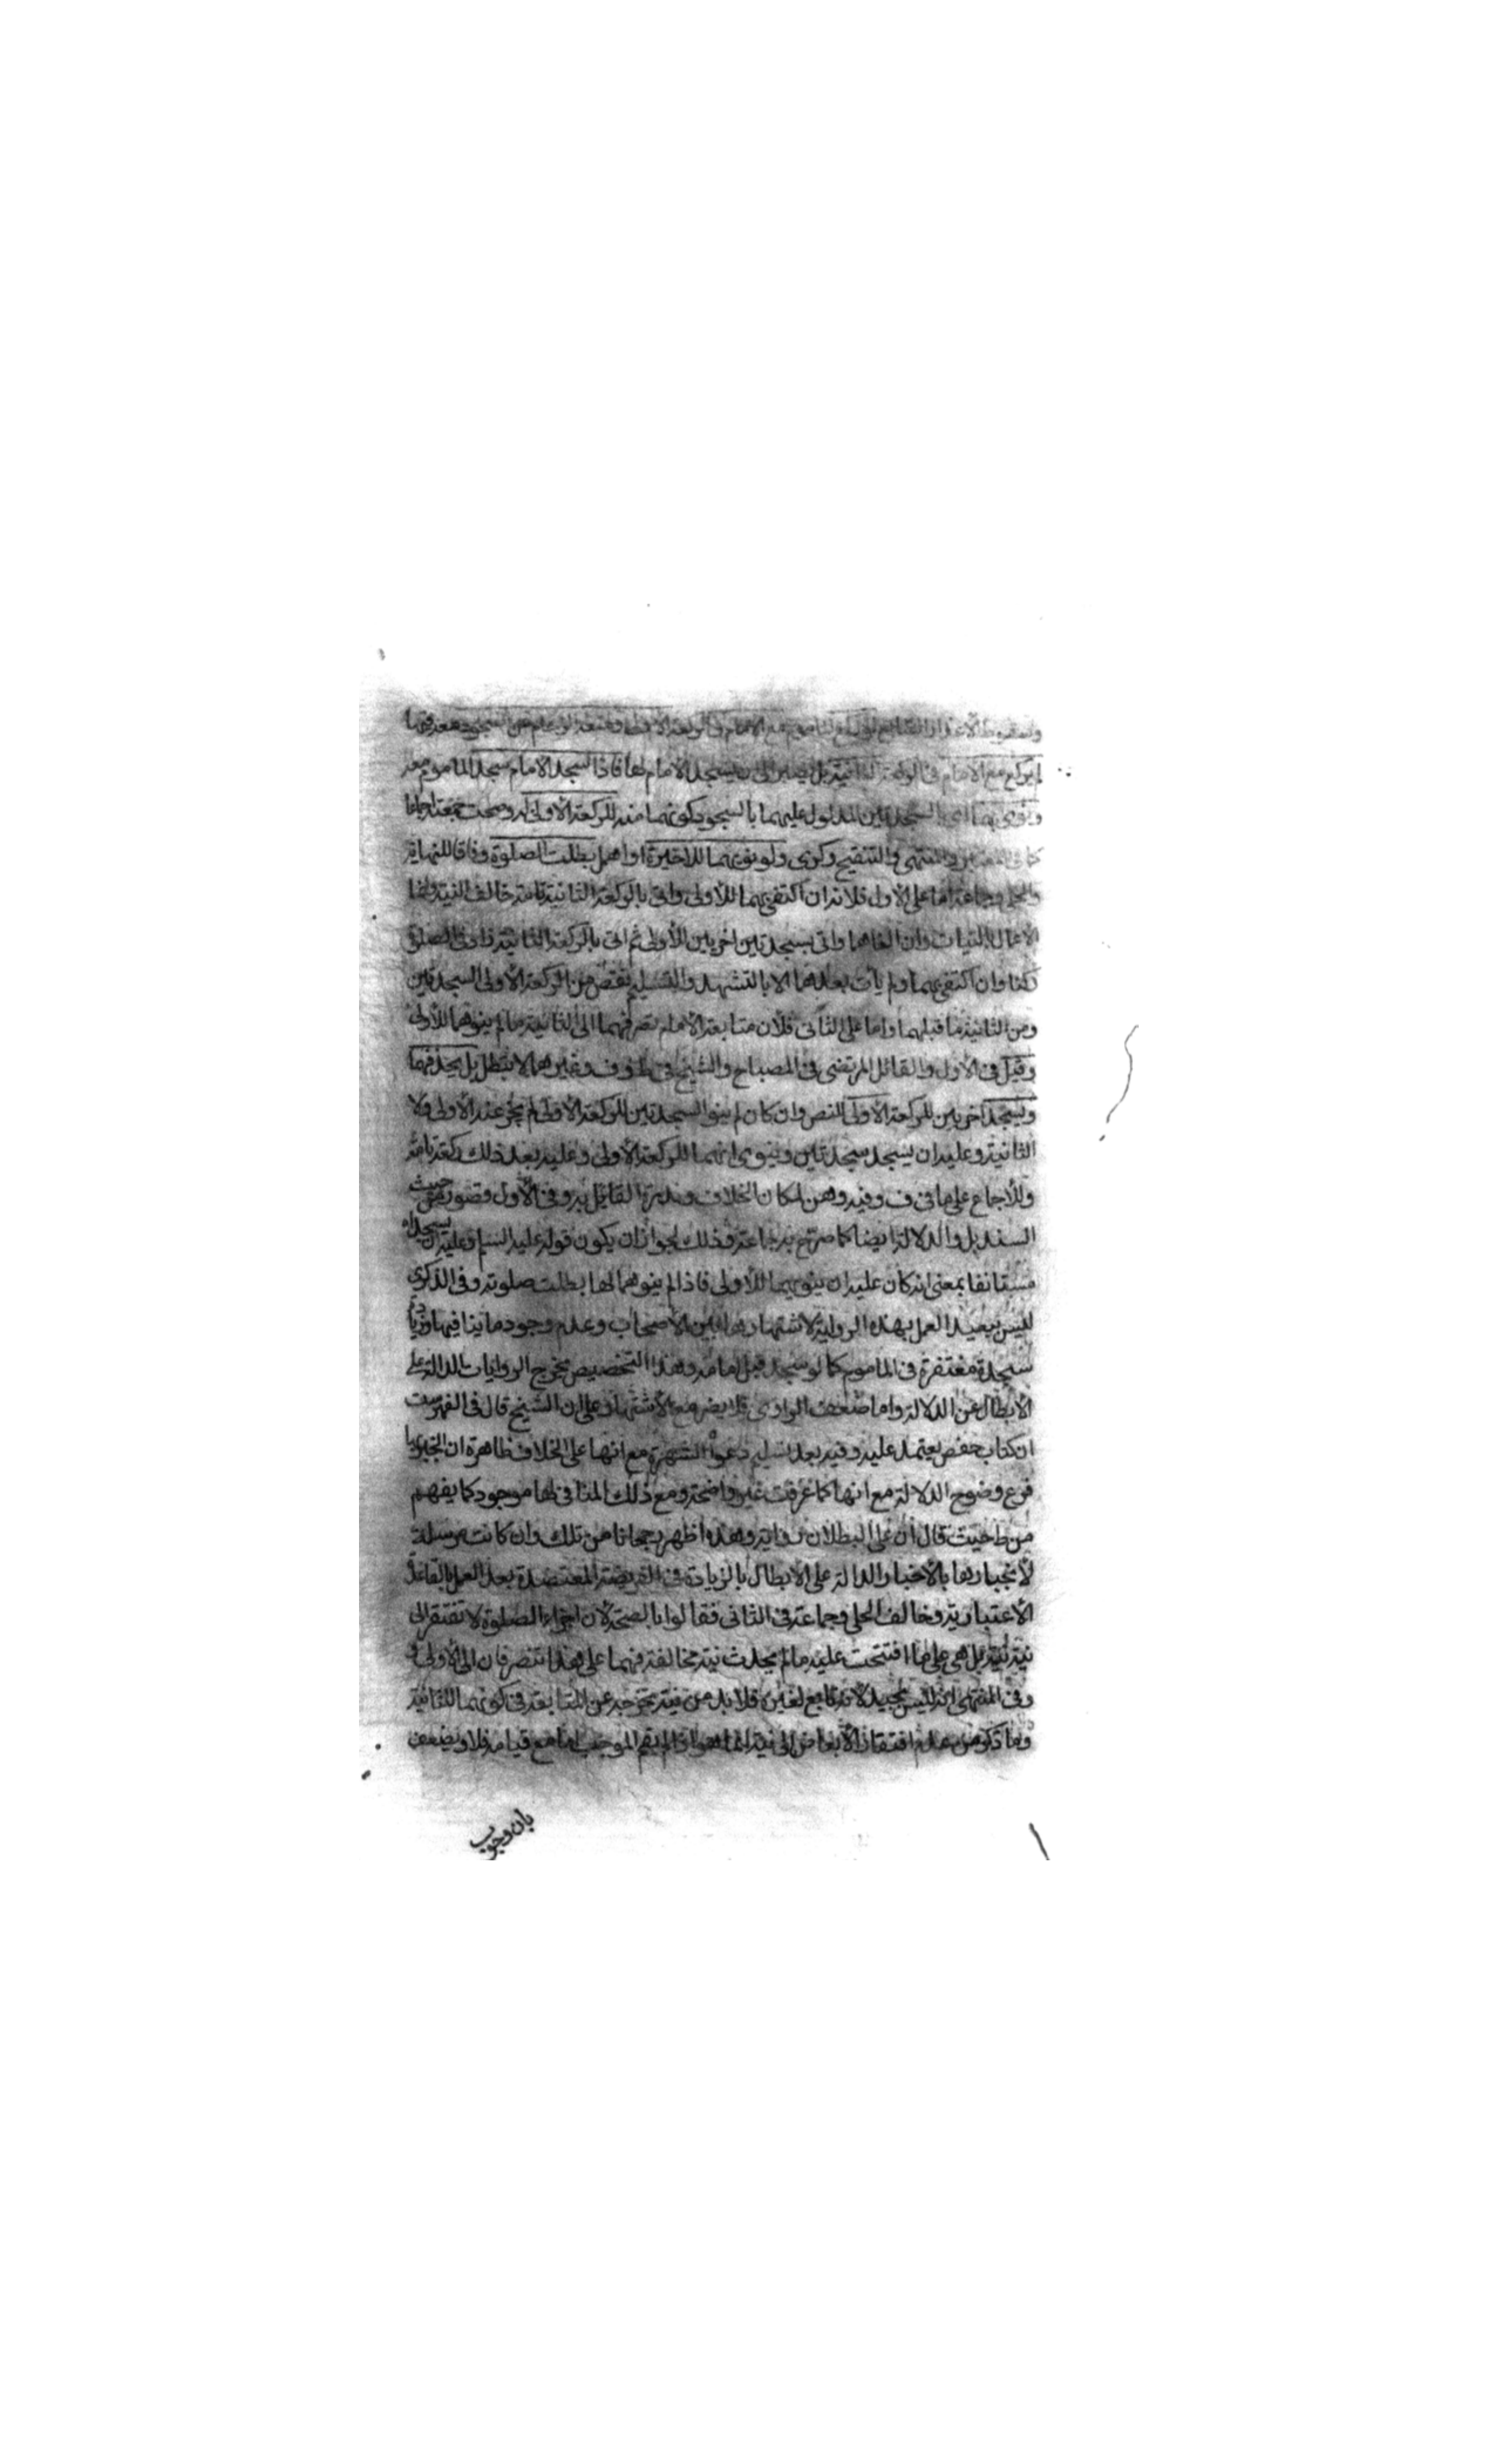 لم يركع مع الامام في الركعة الثانية بل يصبر الى ان يسجد الامام لها فاذا سجد الامام سجد الماموم معه
وينوي بهما اي السجدتين المدلول عليهما بالسجود كونهما منه للركعة الاولى له وصحت جمعته اجماعا
كما في المعتبر والمنتهى والتنقيح وكرى ولو نوى بهما للاخيرة او اهمل بطلت الصلوة وفاقا للنهاية
والحلي وجماعة اما على الاول فلانه ان اكتفى بهما للاولى واتى بالركعة الثانية تامة خالف النية وانما
الاعمال بالنيات وان الغاهما واتى بسجدتين اخريين للأولى ثم اتى بالركعة الثانية زاد في الصلوة
ركنا وان اكتفى بهما ولم يأت بعدهما الا بالتشهد والتسليم نقص من الركعة الأولى السجدتين
ومن الثانية ما قبلهما واما على الثاني فلأن متابعة الامام تصرفهما الى الثانية ما لم ينوهما للأولى
وقيل في الاول والقائل المرتضى في المصباح والشيخ في ط وف وغيرهما لا تبطل بل يحذفهما
ويسجد اخريين للركعة الأولى للنص وان كان لم ينو السجدتين للركعة الاولى لم يجز عنه الأولى ولا
الثانية وعليه ان يسجد سجدتين وينوي انهما للركعة الأولى وعليه بعد ذلك ركعة تامة
وللأجماع على ما في ف وفيه وهن لمكان الخلاف وندرة القائل به وفي الأول قصور من حيث
السند بل والدلالة ايضا كما صرح به جماعة وذلك لجواز ان يكون قوله عليه السلم وعليه ان يسجد اه
مستانفا بمعنى انه كان عليه ان ينويهما للأولى فاذا لم ينوهما لها بطلت صلوته وفي الذكرى
ليس ببعيد العمل بهذه الرواية لاشتهارها بين الأصحاب وعدم وجود ما ينافيها وزيادة
سجدة مغتفرة في الماموم كما لو سجد قبل امامه وهذا التخصيص مخرج الروايات الدالة على
الأبطال عن الدلالة واما ضعف الراوي فلا يضر مع الأشتهار على ان الشيخ قال في الفهرست
ان كتاب حفص يعتمد عليه وفيه بعد تسليم دعوى الشهرة مع انها على الخلاف ظاهرة ان الجبر بها
فرع وضوح الدلالة مع انها كما عرفت غير واضحة ومع ذلك المنافي لها موجود كما يفهم
من ط حيث قال ان على البطلان رواية وهذه اظهر رجحانا من تلك وان كانت مرسلة
لأنجبارها بالأخبار الدالة على الابطال بالزيادة في الفريضة المعتضدة بعد العمل بالقاعدة
الأعتبارية وخالف الحلي وجماعة في الثاني فقالوا بالصحة لأن اجزاء الصلوة لا تفتقر الى
نية بل هي على ما افتتحت عليه ما لم يحدث نية مخالفة فهما على هذا تنصرفان الى الأولى
وفي المنتهى انه ليس بجيد لأنه تابع لغيره فلا بد من نية تخرجه عن المتابعة في كونهما للثانية
وما ذكره من عدم افتقار الأبعاض الى نية انما هو اذا لم يقم الموجب اما مع قيامه فلا ويضعف
بان وجوب